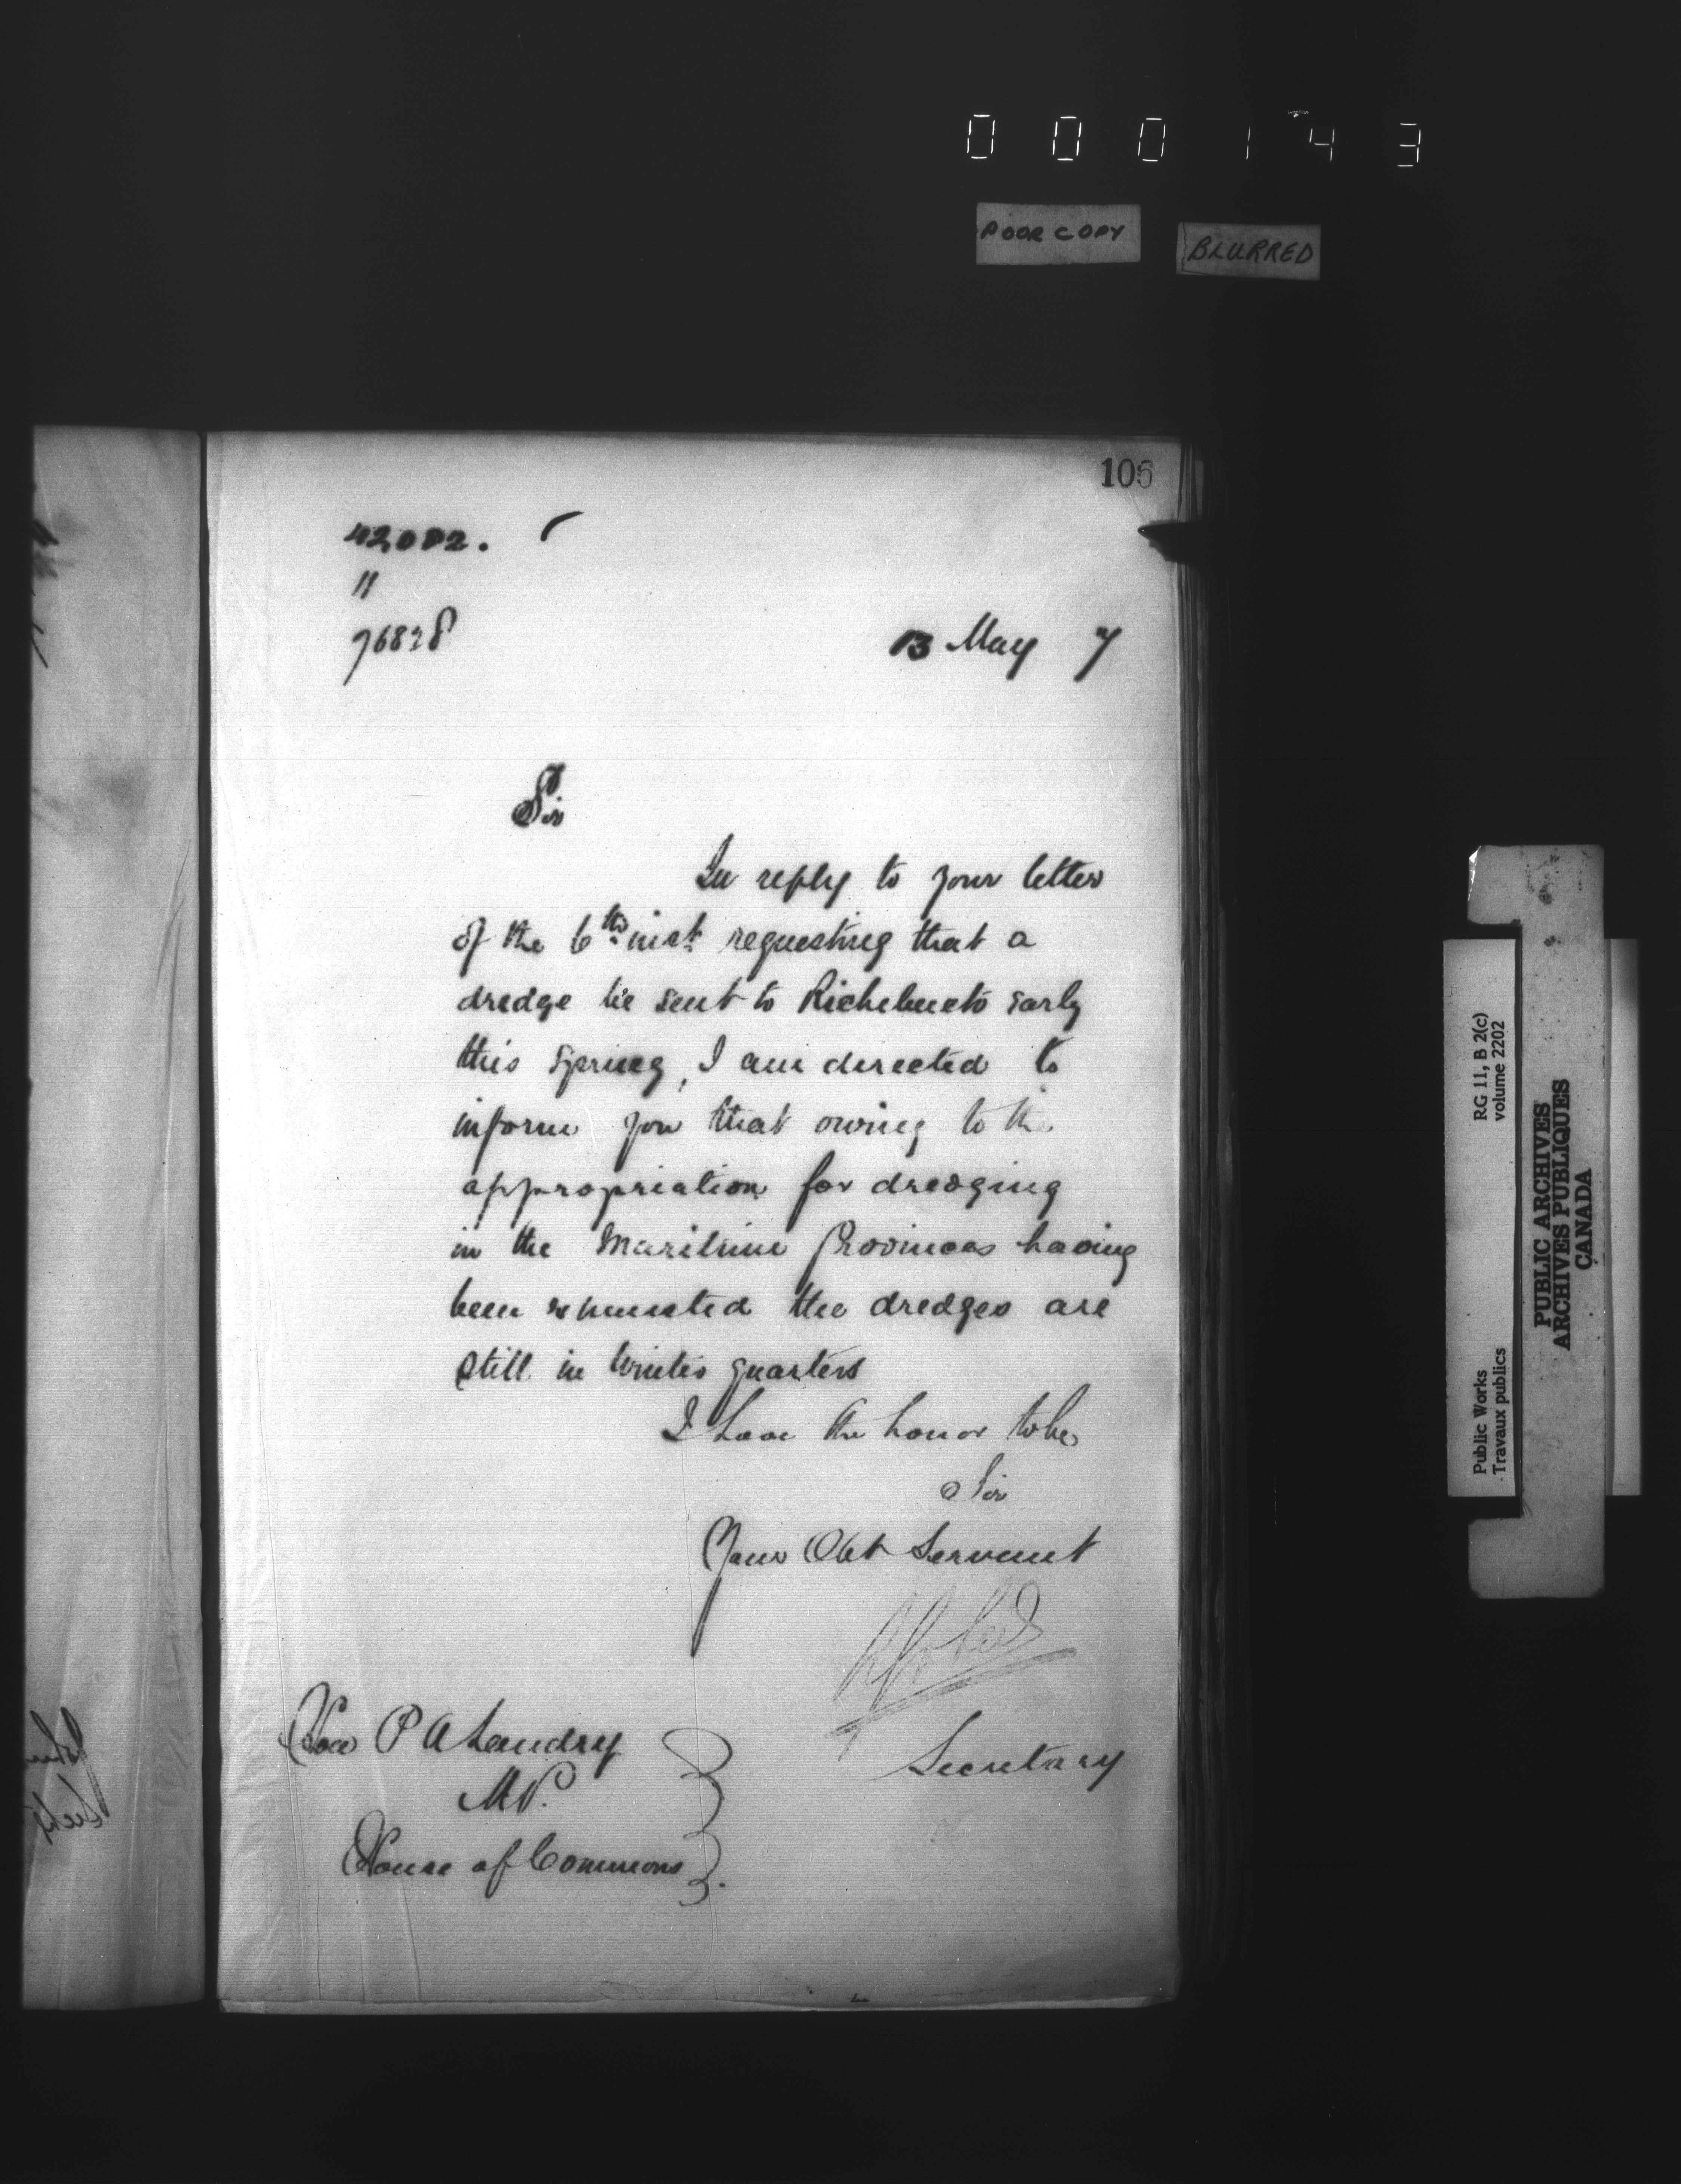 000143
POOR COPY
BLURRED
106
42002.
"
76828
13 May 7
Sir
In reply to your letter
of the 6th inst requesting that a
dredge be sent to Richibucto early
this Spring, I am directed to
inform you that owing to the
appropriation for dredging
in the Maritime Provinces having
been exhausted the dredges are
still in Winter quarters
I have the honor to be
Sir
Your Obt Servant
Secretary
Hon P A Landry
M.P.
House of Commons
RG 11, B 2(c)
volume 2202
Public Works
Travaux publics
PUBLIC ARCHIVES
ARCHIVES PUBLIQUES
CANADA